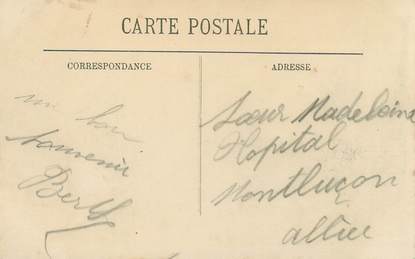 CARTE POSTALE
CORRESPONDANCE
un bon
souvenir
Berthe
ADRESSE
Sœur Madeleine
Hopital
Montluçon
Allier